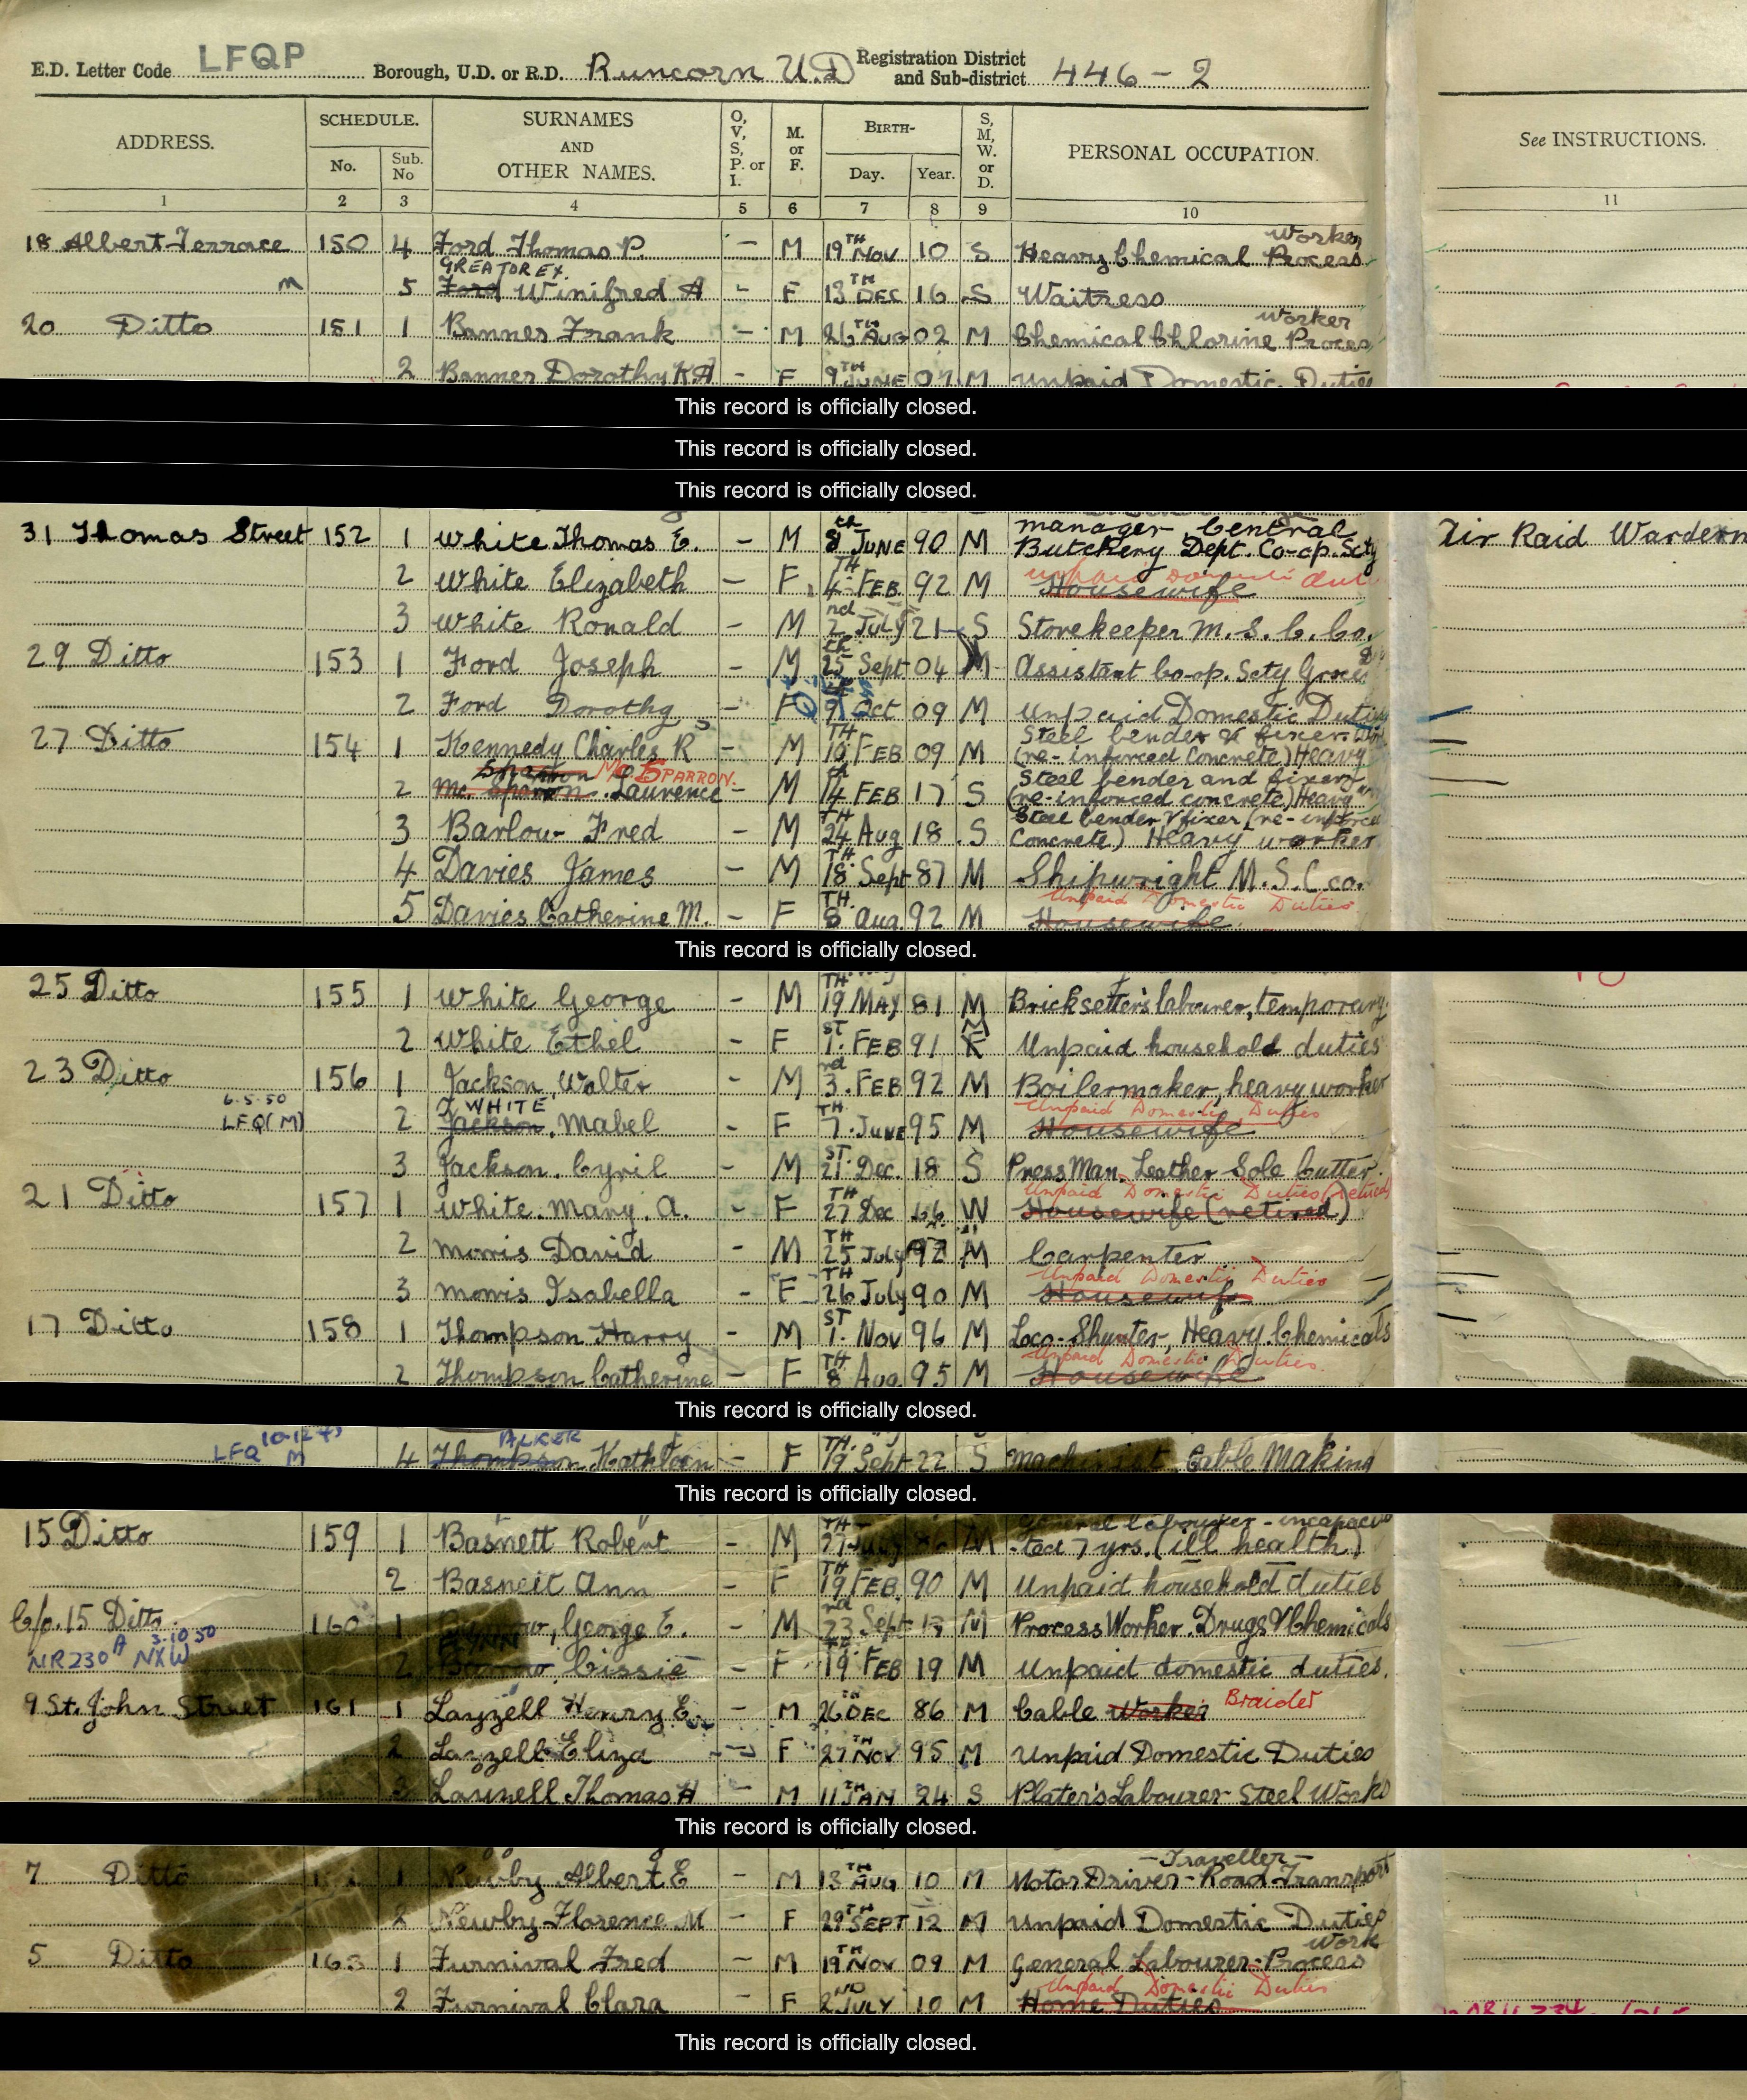 E.D. Letter Code LFQP Borough, U.D. or R.D. Runcorn U.D Registration District and Sub-district 446-2
ADDRESS. SCHEDULE. No. Sub. No SURNAMES AND OTHER NAMES. O, V, S, P. or I. M. or F. BIRTH- Day. Year. S, M, W. or D. PERSONAL OCCUPATION. See INSTRUCTIONS.
1 2 3 4 5 6 7 8 9 10 11
18 Albert Terrace 150 4 Ford Thomas P. - M 19TH Nov 10 S Heavy Chemical Process Worker
M 5 Ford GREATOREX Winifred A - F 13TH DEC 16 S Waitress
20 Ditto 151 1 Banner Frank - M 26TH Aug 02 M Chemical Chlorine Process Worker
2 Banner Dorothy K A - F 9TH JUNE 07 M Unpaid Domestic Duties
This record is officially closed.
This record is officially closed.
This record is officially closed.
31 Thomas Street 152 1 White Thomas E. - M 8th JUNE 90 M manager Central Butchery Dept. Co-op. Scty Air Raid Warden
2 White Elizabeth - F 4TH FEB 92 M Housewife unpaid Domestic dut
3 White Ronald - M 2nd July 21 S Storekeeper M.S.C.Co.
29 Ditto 153 1 Ford Joseph - M 25th Sept 04 M Assistant Co-op. Scty Groc
2 Ford Dorothy - F 9 Oct 09 M Unpaid Domestic Duties
27 Ditto 154 1 Kennedy Charles R S - M 10TH FEB 09 M Steel bender & fixer (re-inforced Concrete) Heavy
2 Mc. Sparron Sparron Mc SPARRON. Laurence - M 14th FEB 17 S Steel bender and fixer (re-inforced concrete) Heavy
3 Barlow Fred - M 24TH Aug 18 S Steel bender & fixer (re-inforce Concrete) Heavy worker
4 Davies James - M 18TH Sept 87 M Shipwright M.S.C co.
5 Davies Catherine M. - F 8TH Aug 92 M Housewife Unpaid Domestic Duties
This record is officially closed.
25 Ditto 155 1 White George - M 19TH MAY 81 M Bricksetter's labourer, temporary
2 White Ethel - F 1ST FEB 91 M Unpaid household duties
23 Ditto 156 1 Jackson, Walter - M 3rd FEB 92 M Boilermaker, heavy worker
6.5.50 LFQ(M) 2 Jackson. WHITE Mabel - F 7TH June 95 M Housewife Unpaid Domestic Duties
3 Jackson. Cyril - M 21ST Dec. 18 S Press Man, Leather Sole Cutter.
21 Ditto 157 1 White. Mary. A. - F 27TH Dec 66 W Housewife (retired) Unpaid Domestic Duties (retired)
2 Morris David - M 25TH July 92 M Carpenter
3 Morris Isabella - F 26TH July 90 M Housewife Unpaid Domestic Duties
17 Ditto 158 1 Thompson Harry - M 1ST Nov 96 M Loco-Shunter, Heavy Chemicals
2 Thompson Catherine - F 8TH Aug. 95 M Housewife Unpaid Domestic Duties
This record is officially closed.
LFQ M 4 Thompson ALKER Kathleen - F 19TH Sept 22 S Machinist Cable Making
This record is officially closed.
15 Ditto 159 1 Basnett Robert - M 27TH July 86 M General labourer - incapaci-tated 7 yrs. (ill health)
2 Basnett Ann - F 19TH FEB. 90 M Unpaid household duties
C/o. 15 Ditto 160 1 George E. - M 23rd Sept 17 M Process Worker. Drugs & Chemicals
NR230A 3.10.50 NXW 2 Barrow FLYNN Cissie - F 19TH FEB 19 M Unpaid domestic duties.
9 St. John Street 161 1 Layzell Henry E. - M 26TH DEC 86 M Cable Worker Braider
2 Layzell Eliza - F 27TH NOV 95 M Unpaid Domestic Duties
3 Layzell Thomas H - M 11TH JAN 24 S Plater's Labourer - Steel Works
This record is officially closed.
7 Ditto 1 Newby Albert E - M 13TH AUG 10 M Motor Driver - Road Transport - Traveller -
2 Newby Florence M - F 29TH SEPT 12 M Unpaid Domestic Duties
5 Ditto 163 1 Furnival Fred - M 19TH NOV 09 M General Labourer - Process Work
2 Furnival Clara - F 2ND JULY 10 M Home Duties Unpaid Domestic Duties
This record is officially closed.